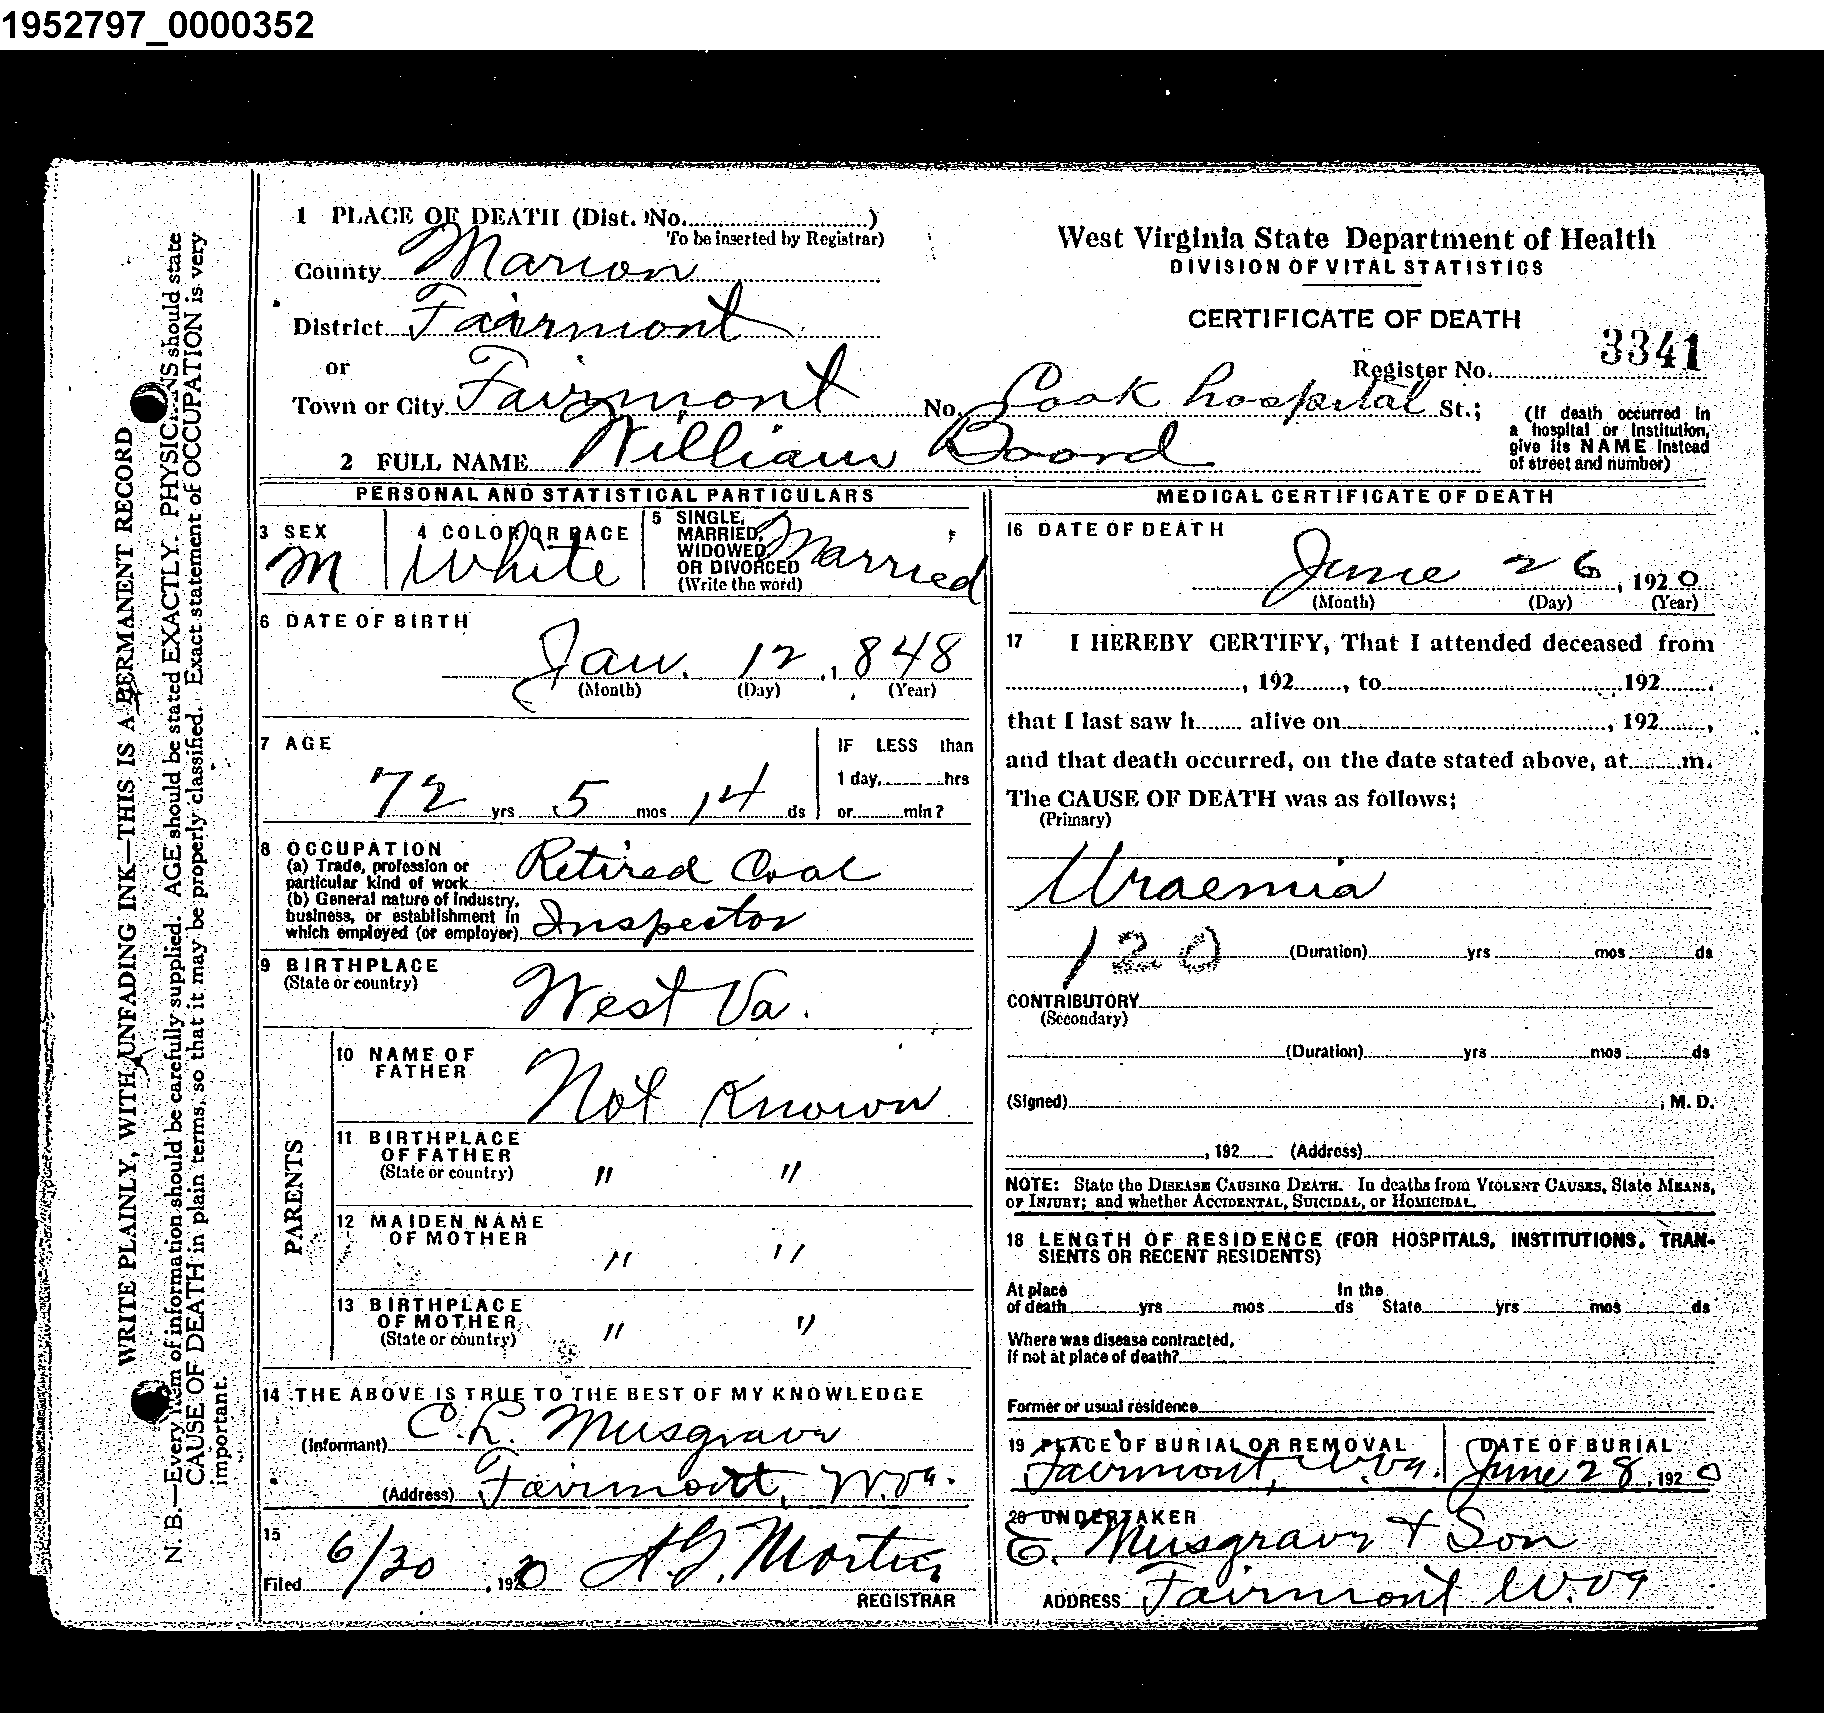 1952797_0000352
1 PLACE OF DEATH (Dist. No..........)
To be inserted by Registrar)
County Marion
District Fairmont
or
Town or City Fairmont No. Cook hospital St.;
(If death occurred in a hospital or institution, give its NAME instead of street and number)
2 FULL NAME William Boord
West Virginia State Department of Health
DIVISION OF VITAL STATISTICS
CERTIFICATE OF DEATH
Register No. 3341
PERSONAL AND STATISTICAL PARTICULARS
3 SEX M
4 COLOR OR RACE White
5 SINGLE, MARRIED, WIDOWED OR DIVORCED (Write the word) Married
6 DATE OF BIRTH
Jan. 12, 848
(Month) (Day) (Year)
7 AGE
72 yrs 5 mos 14 ds
IF LESS than
1 day, hrs
or min?
8 OCCUPATION
(a) Trade, profession or particular kind of work Retired Coal
(b) General nature of industry, business, or establishment in which employed (or employer) Inspector
9 BIRTHPLACE
(State or country) West Va.
PARENTS
10 NAME OF FATHER Not Known
11 BIRTHPLACE OF FATHER (State or country) " "
12 MAIDEN NAME OF MOTHER " "
13 BIRTHPLACE OF MOTHER (State or country) " "
14 THE ABOVE IS TRUE TO THE BEST OF MY KNOWLEDGE
(Informant) C. L. Musgrave
(Address) Fairmont, W.Va.
15
Filed 6/30, 1920
REGISTRAR
MEDICAL CERTIFICATE OF DEATH
16 DATE OF DEATH
June 26, 1920
(Month) (Day) (Year)
17 I HEREBY CERTIFY, That I attended deceased from
, 192 , to 192 .
that I last saw h alive on , 192 ,
and that death occurred, on the date stated above, at m.
The CAUSE OF DEATH was as follows;
(Primary)
Uraemia
120 (Duration) yrs mos ds
CONTRIBUTORY
(Secondary)
(Duration) yrs mos ds
(Signed) , M. D.
, 192 (Address)
NOTE: State the DISEASE CAUSING DEATH. In deaths from VIOLENT CAUSES, State MEANS,
OF INJURY; and whether ACCIDENTAL, SUICIDAL, or HOMICIDAL.
18 LENGTH OF RESIDENCE (FOR HOSPITALS, INSTITUTIONS, TRAN-
SIENTS OR RECENT RESIDENTS)
At place of death yrs mos ds In the State yrs mos ds
Where was disease contracted,
if not at place of death?
Former or usual residence
19 PLACE OF BURIAL OR REMOVAL
Fairmont, W.Va.
DATE OF BURIAL
June 28, 1920
20 UNDERTAKER
E. Musgrave & Son
ADDRESS Fairmont W.Va
WRITE PLAINLY, WITH UNFADING INK—THIS IS A PERMANENT RECORD
N. B.—Every item of information should be carefully supplied. AGE should be stated EXACTLY. PHYSICIANS should state
CAUSE OF DEATH in plain terms, so that it may be properly classified. Exact statement of OCCUPATION is very
important.